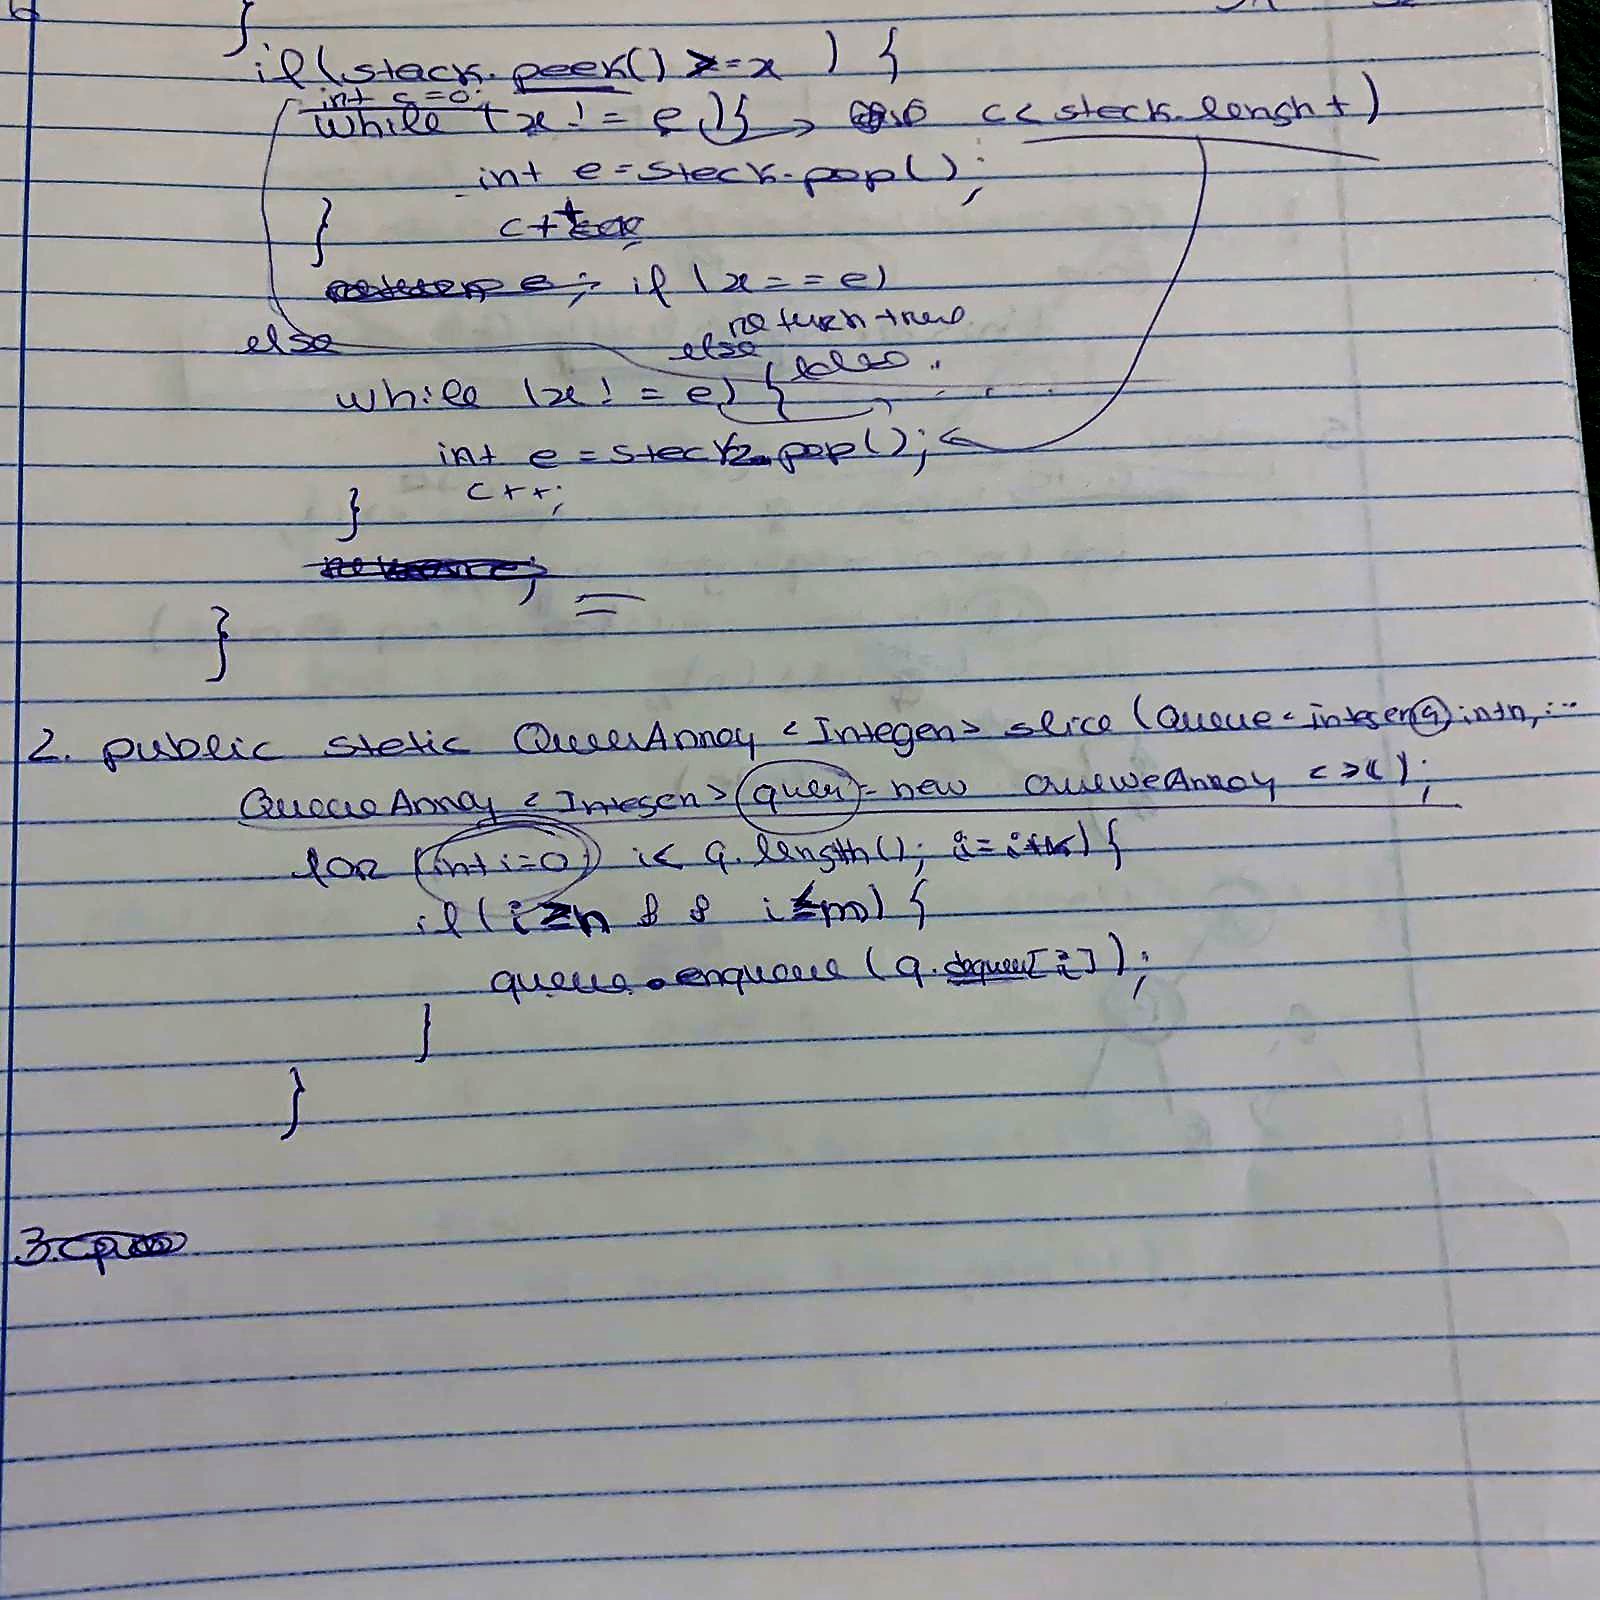 }
if(stack.peek() >= x ) {
int c=0;
while (x != e){ c< steck.lenght)
int e=steck.pop();
} c++
if (x==e)
return true
else else
while (x != e) {
int e = steck2.pop();
c++;
}
}
2. public stetic QueueArray <Integer> slice (Queue < integer q) int n, ...
QueueArray <Integer> queu = new QueueArray <>();
for (int i=0; i< q.length(); i=i+k) {
if (i ≥ n && i ≤ m) {
queue.enqueue (q.dequeu[i]);
}
}
3.